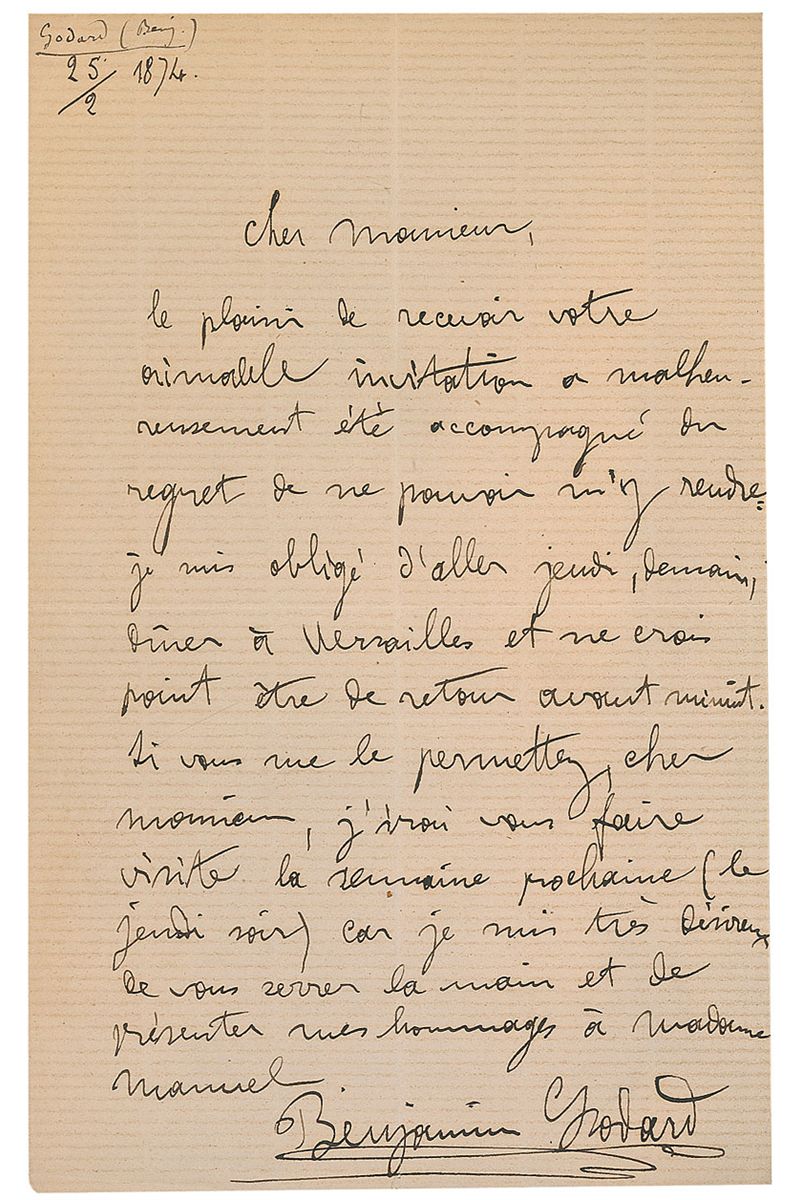 Godard (Benj.)
25/2 1874.
cher monsieur,
le plaisir de recevoir votre
aimable invitation a malheu-
reusement été accompagné du
regret de ne pouvoir m'y rendre=
je suis obligé d'aller jeudi, demain,
dîner à Versailles et ne crois
point être de retour avant minuit.
Si vous me le permettez, cher
monsieur, j'irai vous faire
visite la semaine prochaine (le
jeudi soir) car je suis très désireux
de vous serrer la main et de
présenter mes hommages à madame
manuel
Benjamin Godard